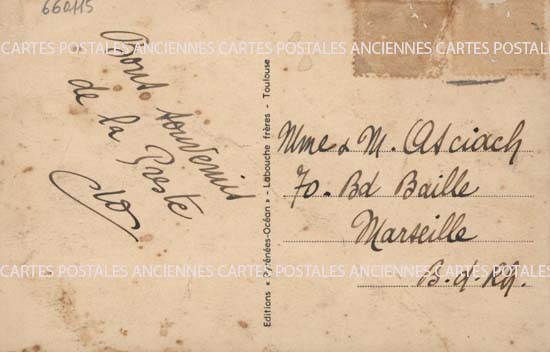 660115
CARTES POSTALES ANCIENNES CARTES POSTALES ANCIENNES CARTES POSTALES
Bons souvenirs
de la Preste
Clo
Editions « Pyrénées-Océan » - Labouche frères - Toulouse
Mme & M. Asciach
70. Bd Baille
Marseille
B.d.Rh.
CARTES POSTALES ANCIENNES CARTES POSTALES ANCIENNES CARTES POSTALES